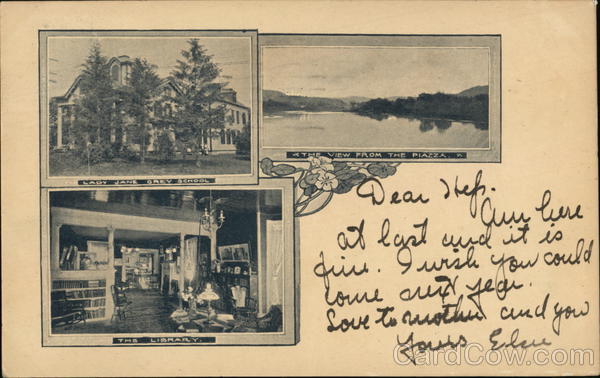 LADY JANE GREY SCHOOL
THE VIEW FROM THE PIAZZA.
THE LIBRARY.
Dear Hep.
Am here
at last and it is
fine. I wish you could
come next year.
Love to mother and you
Yours Elsie
CardCow.com